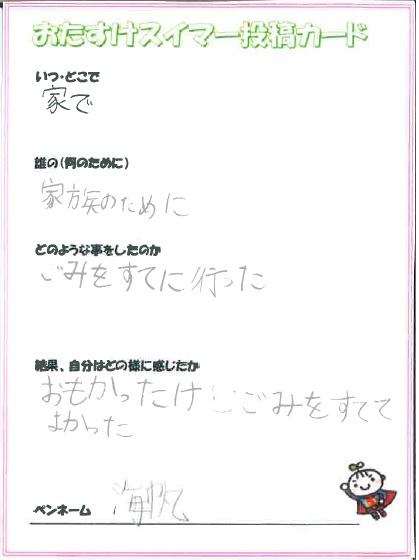 おたすけスイマー投稿カード
いつ・どこで
家で
誰の(何のために)
家族のために
どのような事をしたのか
ごみをすてに行った
結果、自分はどの様に感じたか
おもかったけどごみをすてて
よかった
ペンネーム 海帆